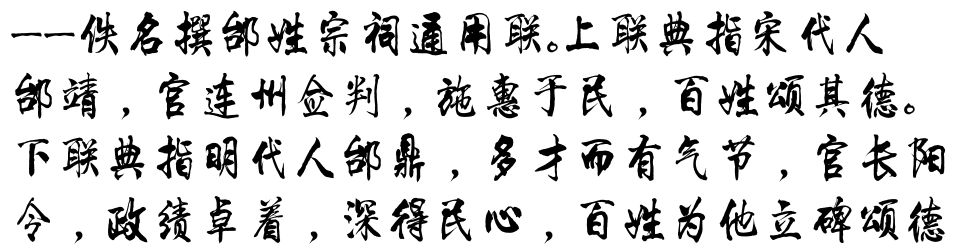 ——佚名撰邰姓宗祠通用联。上联典指宋代人
邰靖，官连州佥判，施惠于民，百姓颂其德。
下联典指明代人邰鼎，多才而有气节，官长阳
令，政绩卓着，深得民心，百姓为他立碑颂德